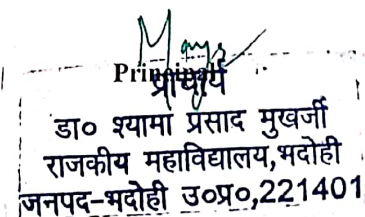 Principal
प्राचार्य
डा० श्यामा प्रसाद मुखर्जी
राजकीय महाविद्यालय,भदोही
जनपद-भदोही उ०प्र०,221401